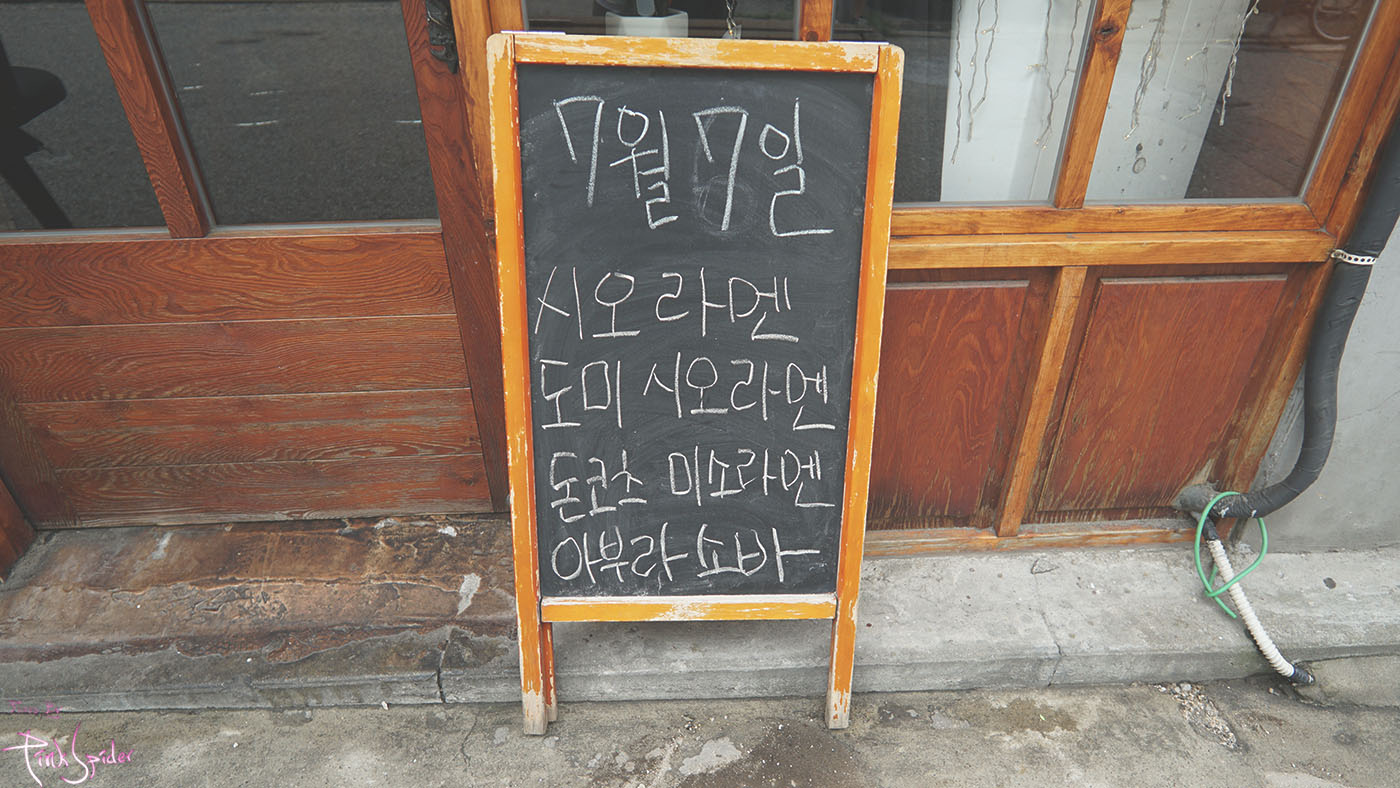 7월 7일
시오라멘
도미 시오라멘
돈코츠 미소라멘
아부라 소바
Pink Spider